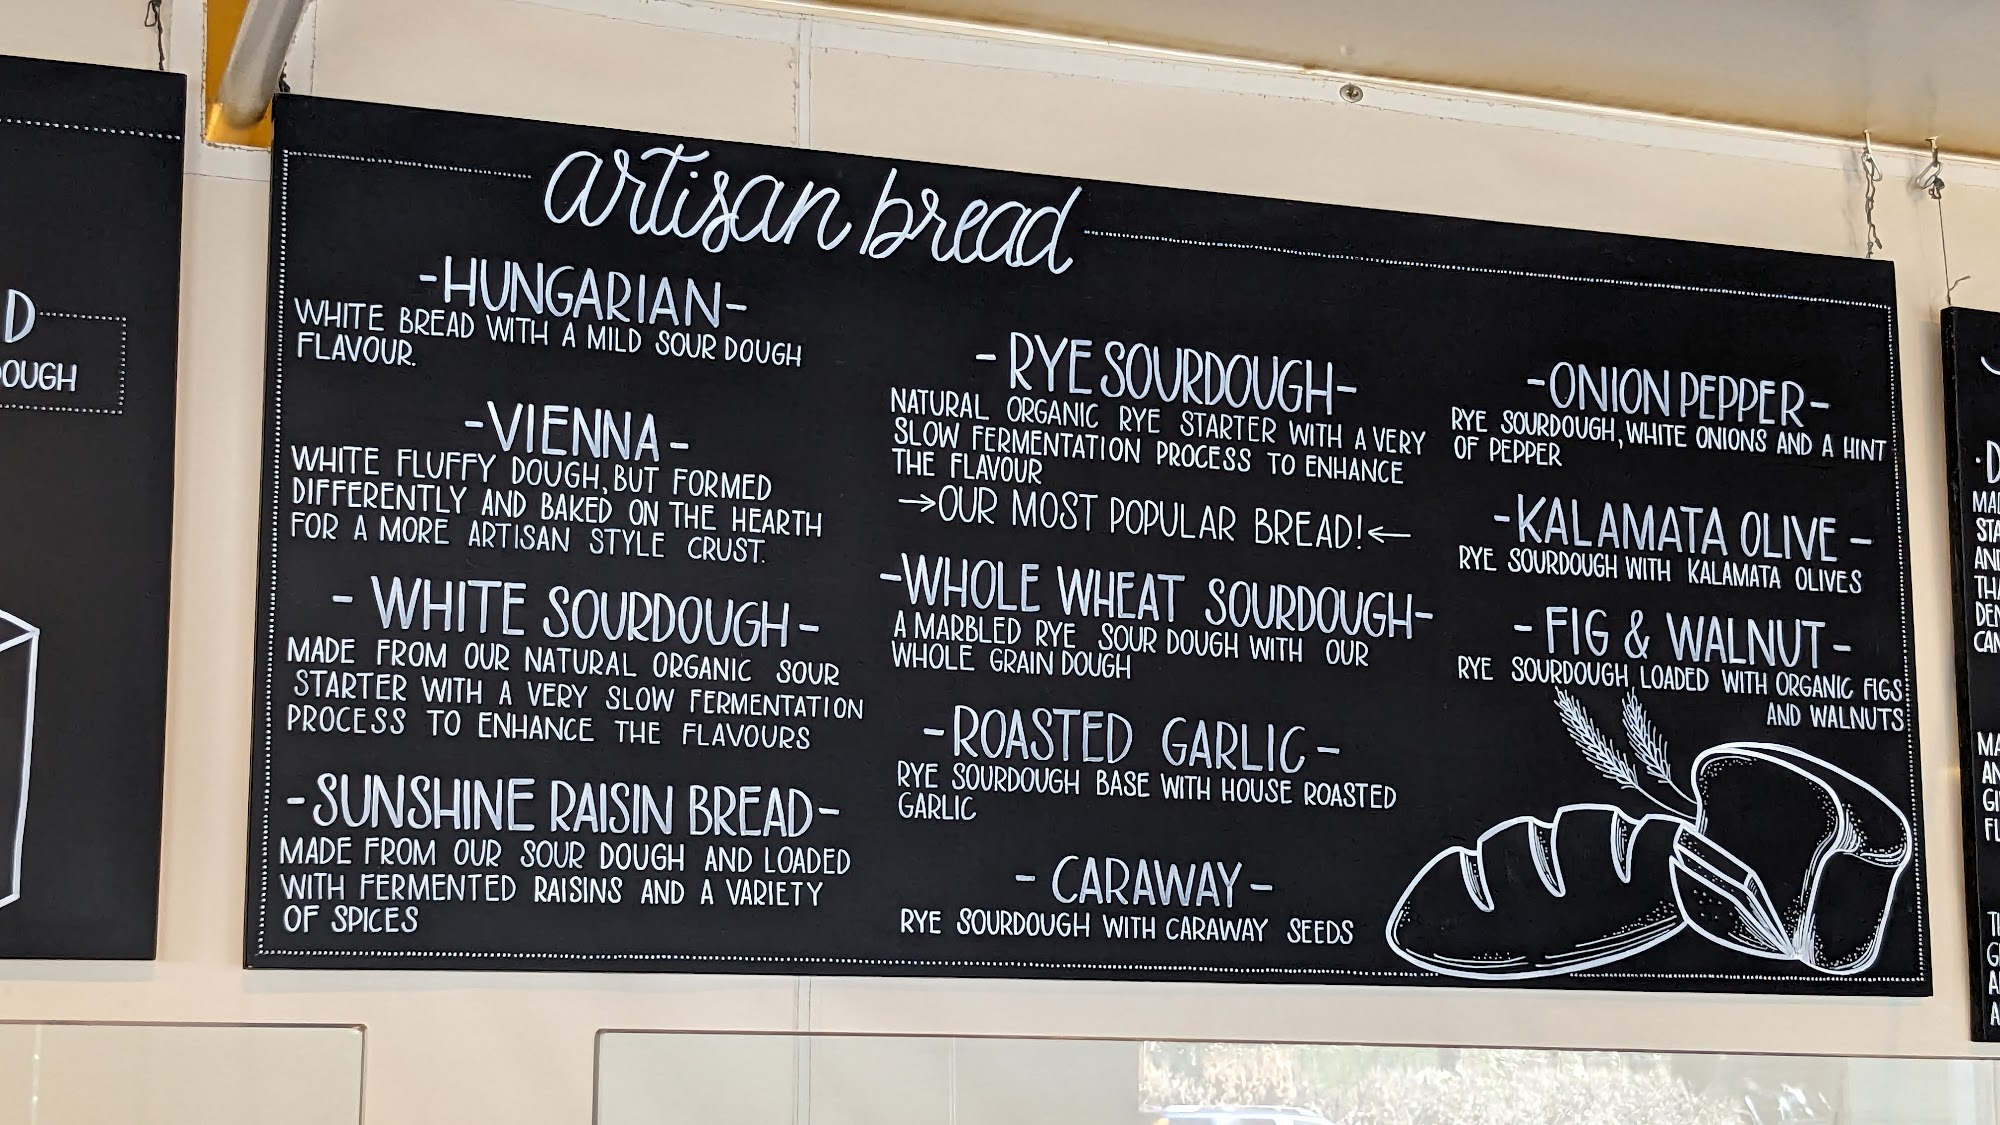 artisan bread
-HUNGARIAN-
WHITE BREAD WITH A MILD SOUR DOUGH
FLAVOUR.
-VIENNA-
WHITE FLUFFY DOUGH, BUT FORMED
DIFFERENTLY AND BAKED ON THE HEARTH
FOR A MORE ARTISAN STYLE CRUST.
- WHITE SOURDOUGH -
MADE FROM OUR NATURAL ORGANIC SOUR
STARTER WITH A VERY SLOW FERMENTATION
PROCESS TO ENHANCE THE FLAVOURS
-SUNSHINE RAISIN BREAD-
MADE FROM OUR SOUR DOUGH AND LOADED
WITH FERMENTED RAISINS AND A VARIETY
OF SPICES
- RYE SOURDOUGH-
NATURAL ORGANIC RYE STARTER WITH A VERY
SLOW FERMENTATION PROCESS TO ENHANCE
THE FLAVOUR
→OUR MOST POPULAR BREAD!←
-WHOLE WHEAT SOURDOUGH-
A MARBLED RYE SOUR DOUGH WITH OUR
WHOLE GRAIN DOUGH
-ROASTED GARLIC-
RYE SOURDOUGH BASE WITH HOUSE ROASTED
GARLIC
- CARAWAY-
RYE SOURDOUGH WITH CARAWAY SEEDS
-ONION PEPPER-
RYE SOURDOUGH, WHITE ONIONS AND A HINT
OF PEPPER
-KALAMATA OLIVE -
RYE SOURDOUGH WITH KALAMATA OLIVES
- FIG & WALNUT-
RYE SOURDOUGH LOADED WITH ORGANIC FIGS
AND WALNUTS